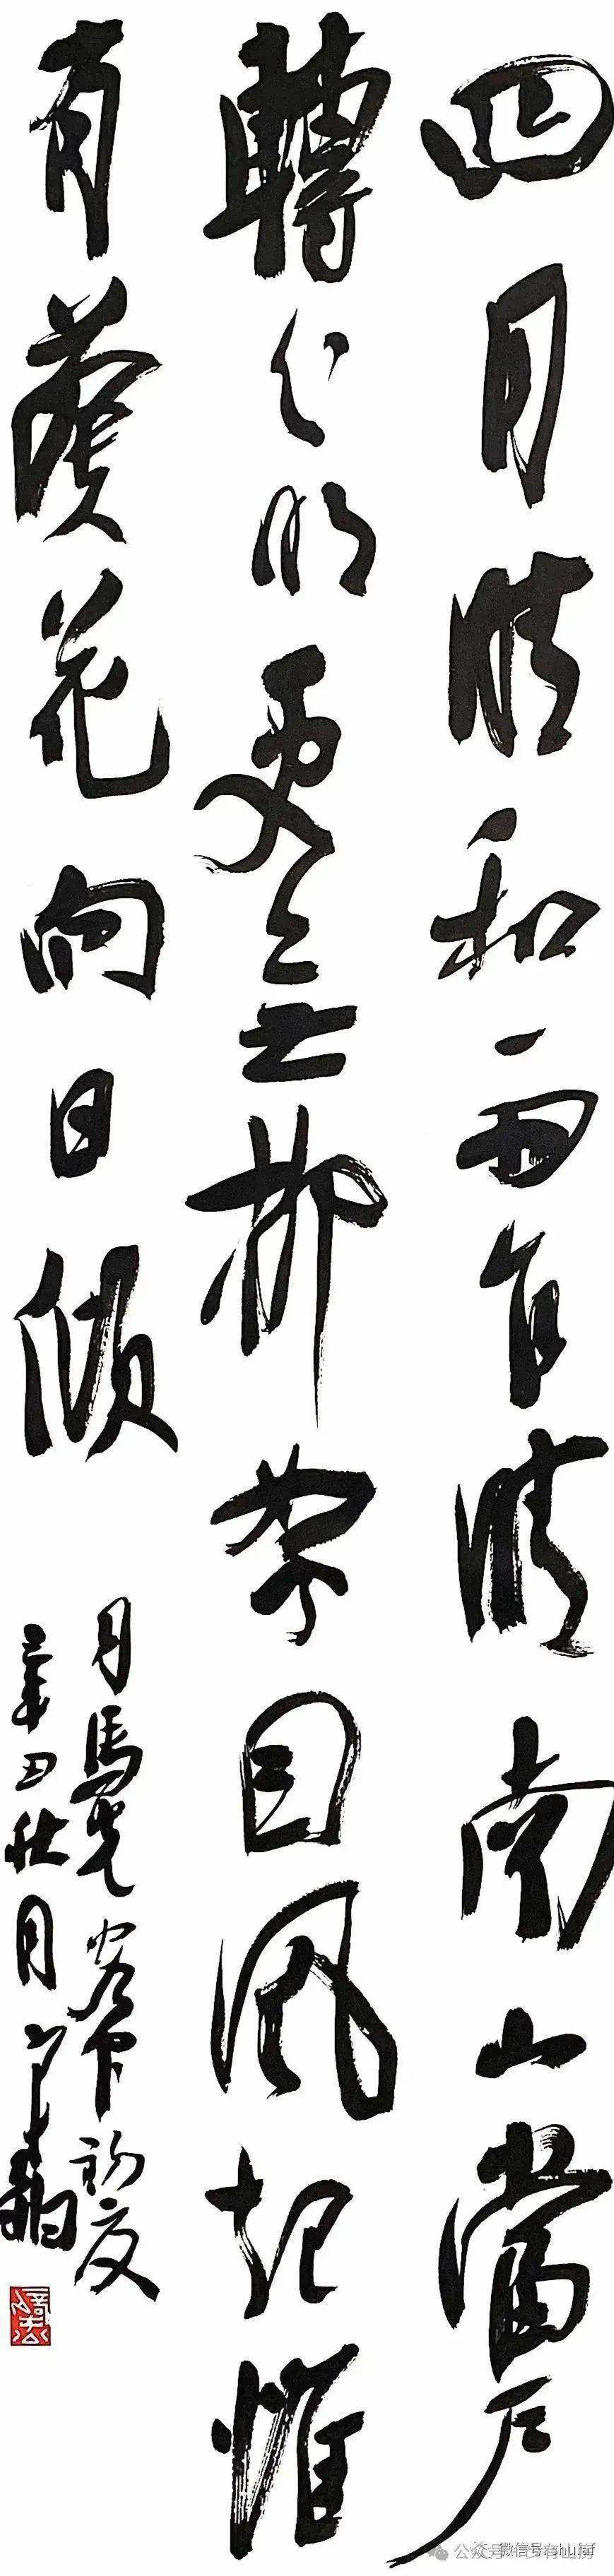 四月清和雨乍晴南山當戶
轉分明更无柳絮因風起惟
有葵花向日傾
司馬光客中初夏
辛丑秋月
微信号: shufaf
公众号